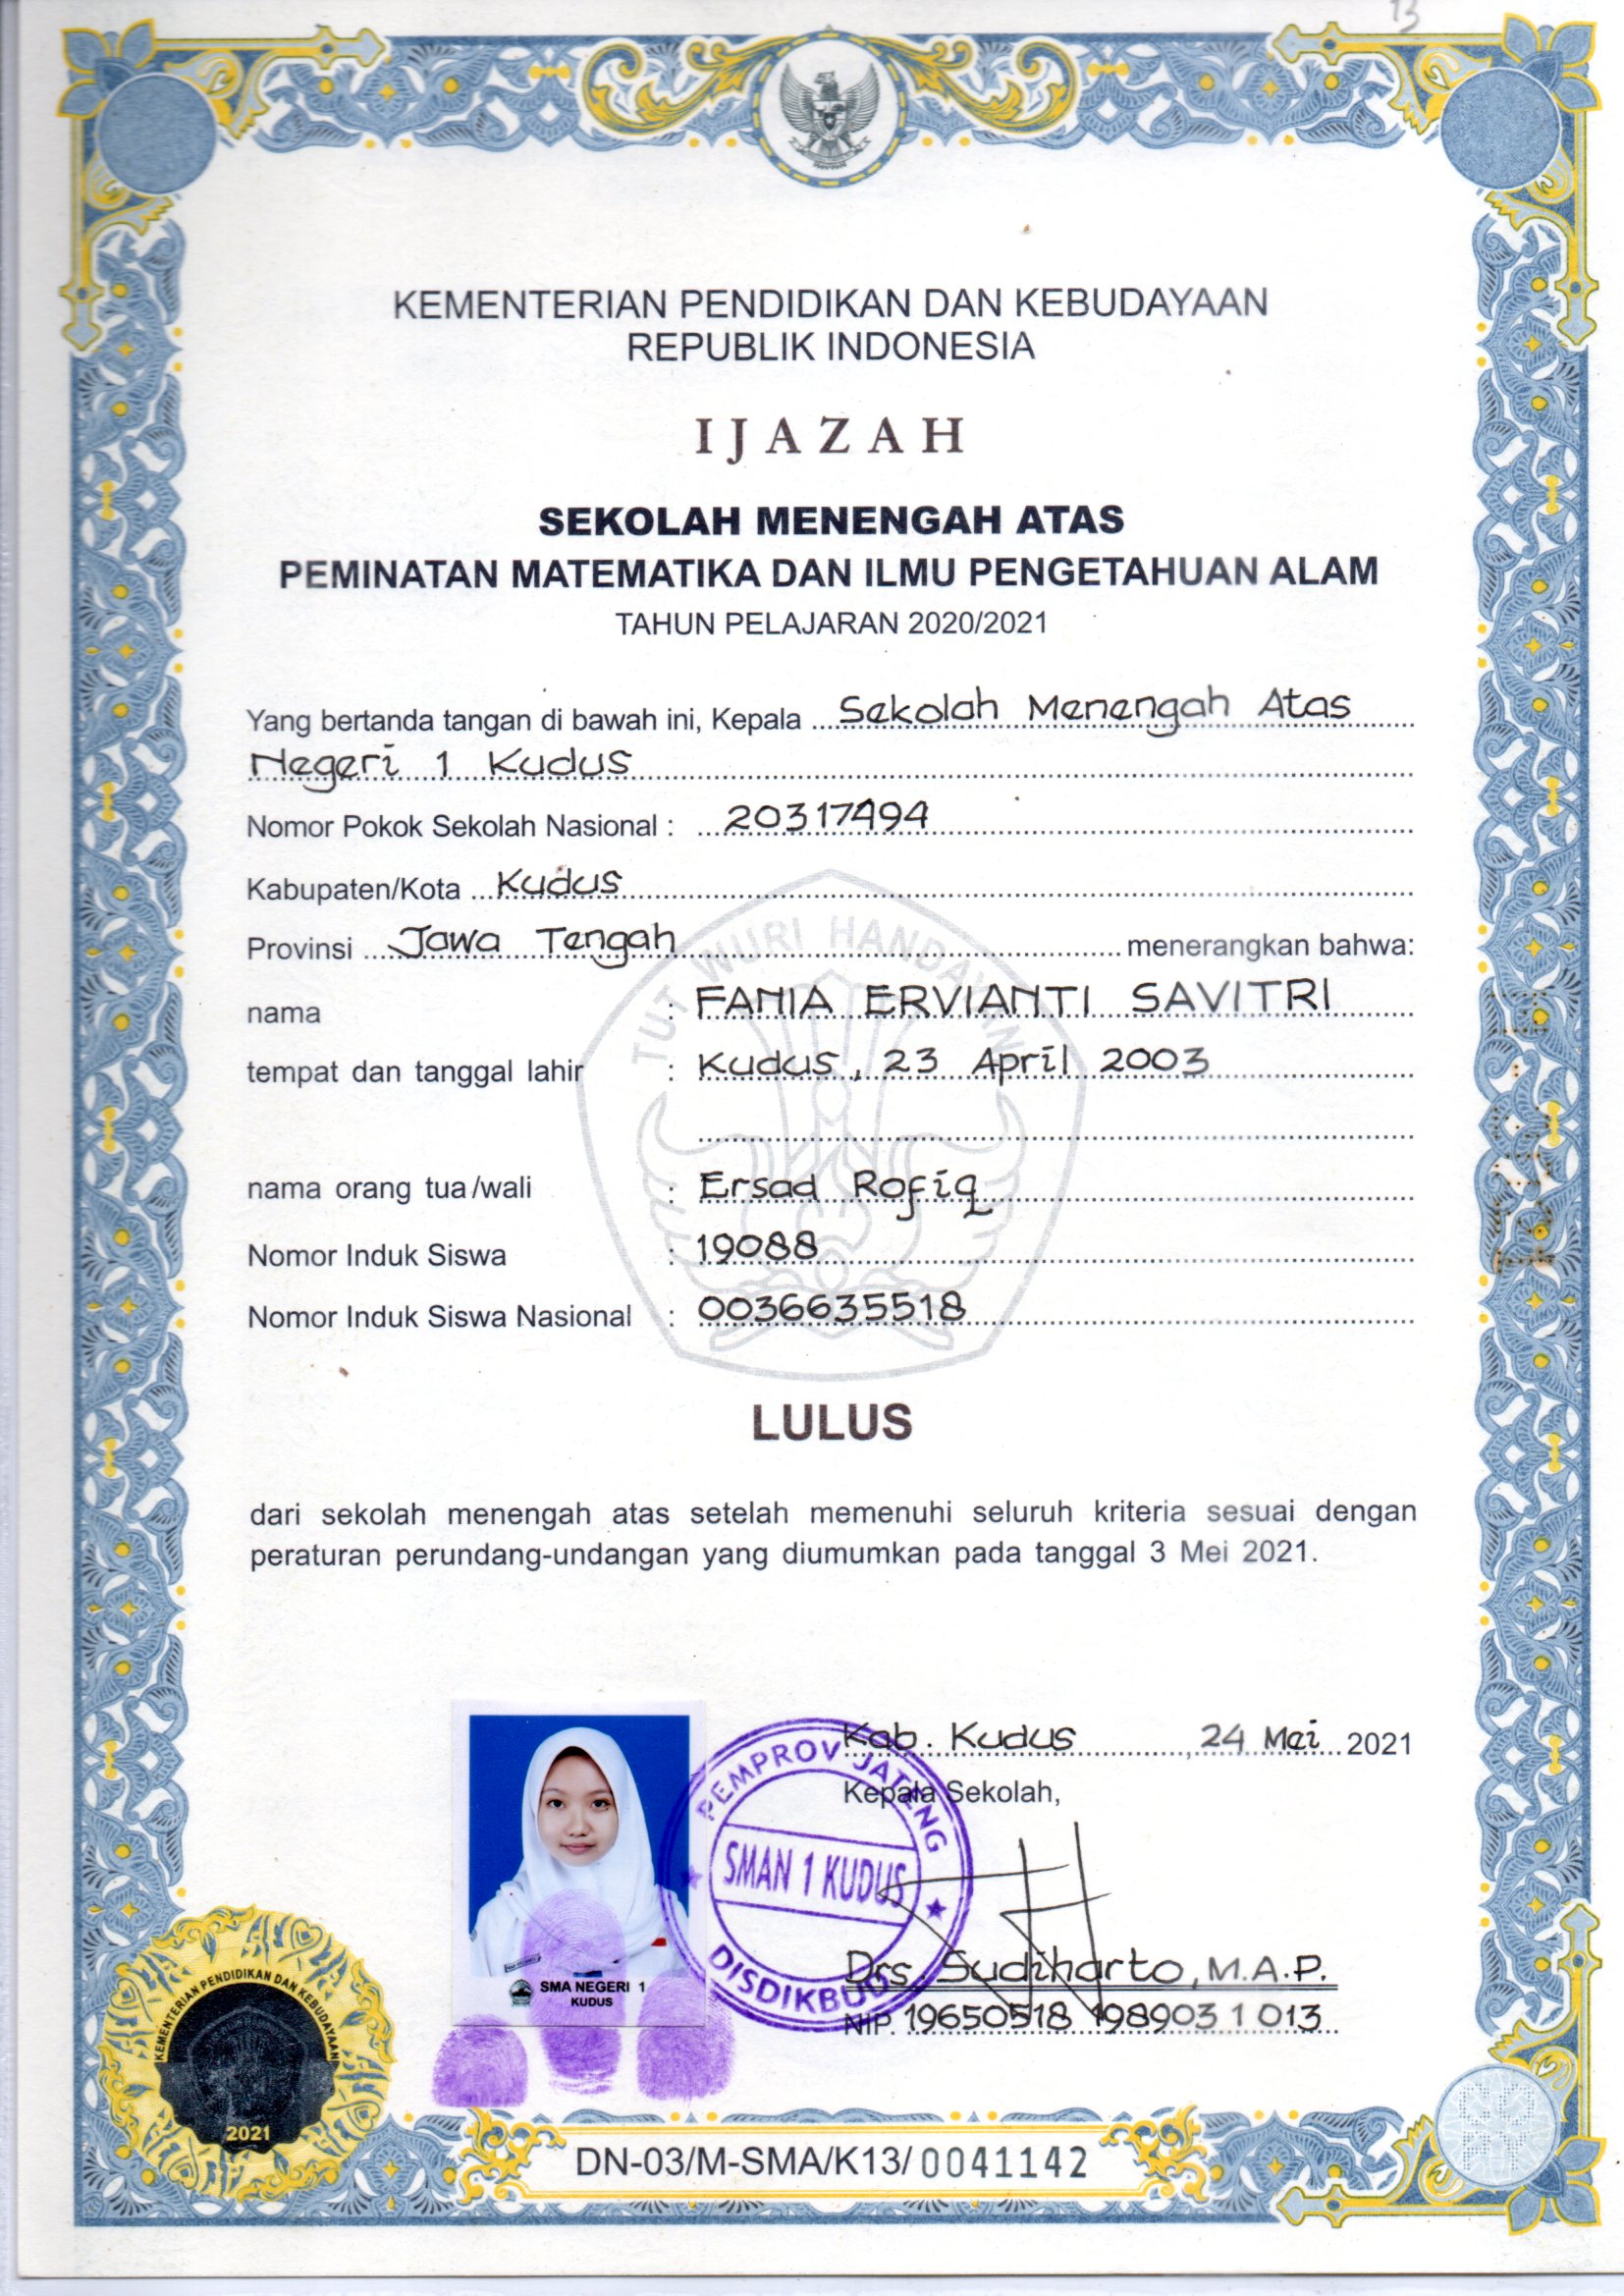 13
KEMENTERIAN PENDIDIKAN DAN KEBUDAYAAN
REPUBLIK INDONESIA
IJAZAH
SEKOLAH MENENGAH ATAS
PEMINATAN MATEMATIKA DAN ILMU PENGETAHUAN ALAM
TAHUN PELAJARAN 2020/2021
Yang bertanda tangan di bawah ini, Kepala Sekolah Menengah Atas
Negeri 1 Kudus
Nomor Pokok Sekolah Nasional : 20317494
Kabupaten/Kota Kudus
Provinsi Jawa Tengah menerangkan bahwa:
TUT WURI HANDAYANI
nama : FANIA ERVIANTI SAVITRI
tempat dan tanggal lahir : Kudus, 23 April 2003
nama orang tua/wali : Ersad Rofiq
Nomor Induk Siswa : 19088
Nomor Induk Siswa Nasional : 0036635518
LULUS
dari sekolah menengah atas setelah memenuhi seluruh kriteria sesuai dengan
peraturan perundang-undangan yang diumumkan pada tanggal 3 Mei 2021.
Kab. Kudus, 24 Mei 2021
Kepala Sekolah,
PEMPROV JATENG
SMAN 1 KUDUS
DISDIKBUD
Drs. Sudiharto, M.A.P.
NIP. 19650518 198903 1 013
SMA NEGERI 1
KUDUS
KEMENTERIAN PENDIDIKAN DAN KEBUDAYAAN
2021
DN-03/M-SMA/K13/0041142